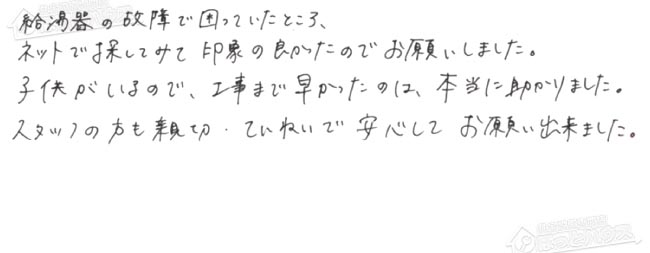 給湯器の故障で困っていたところ、
ネットで探してみて印象の良かたのでお願いしました。
子供がいるので、工事まで早かったのは、本当に助かりました。
スタッフの方も親切・ていねいで安心してお願い出来ました。